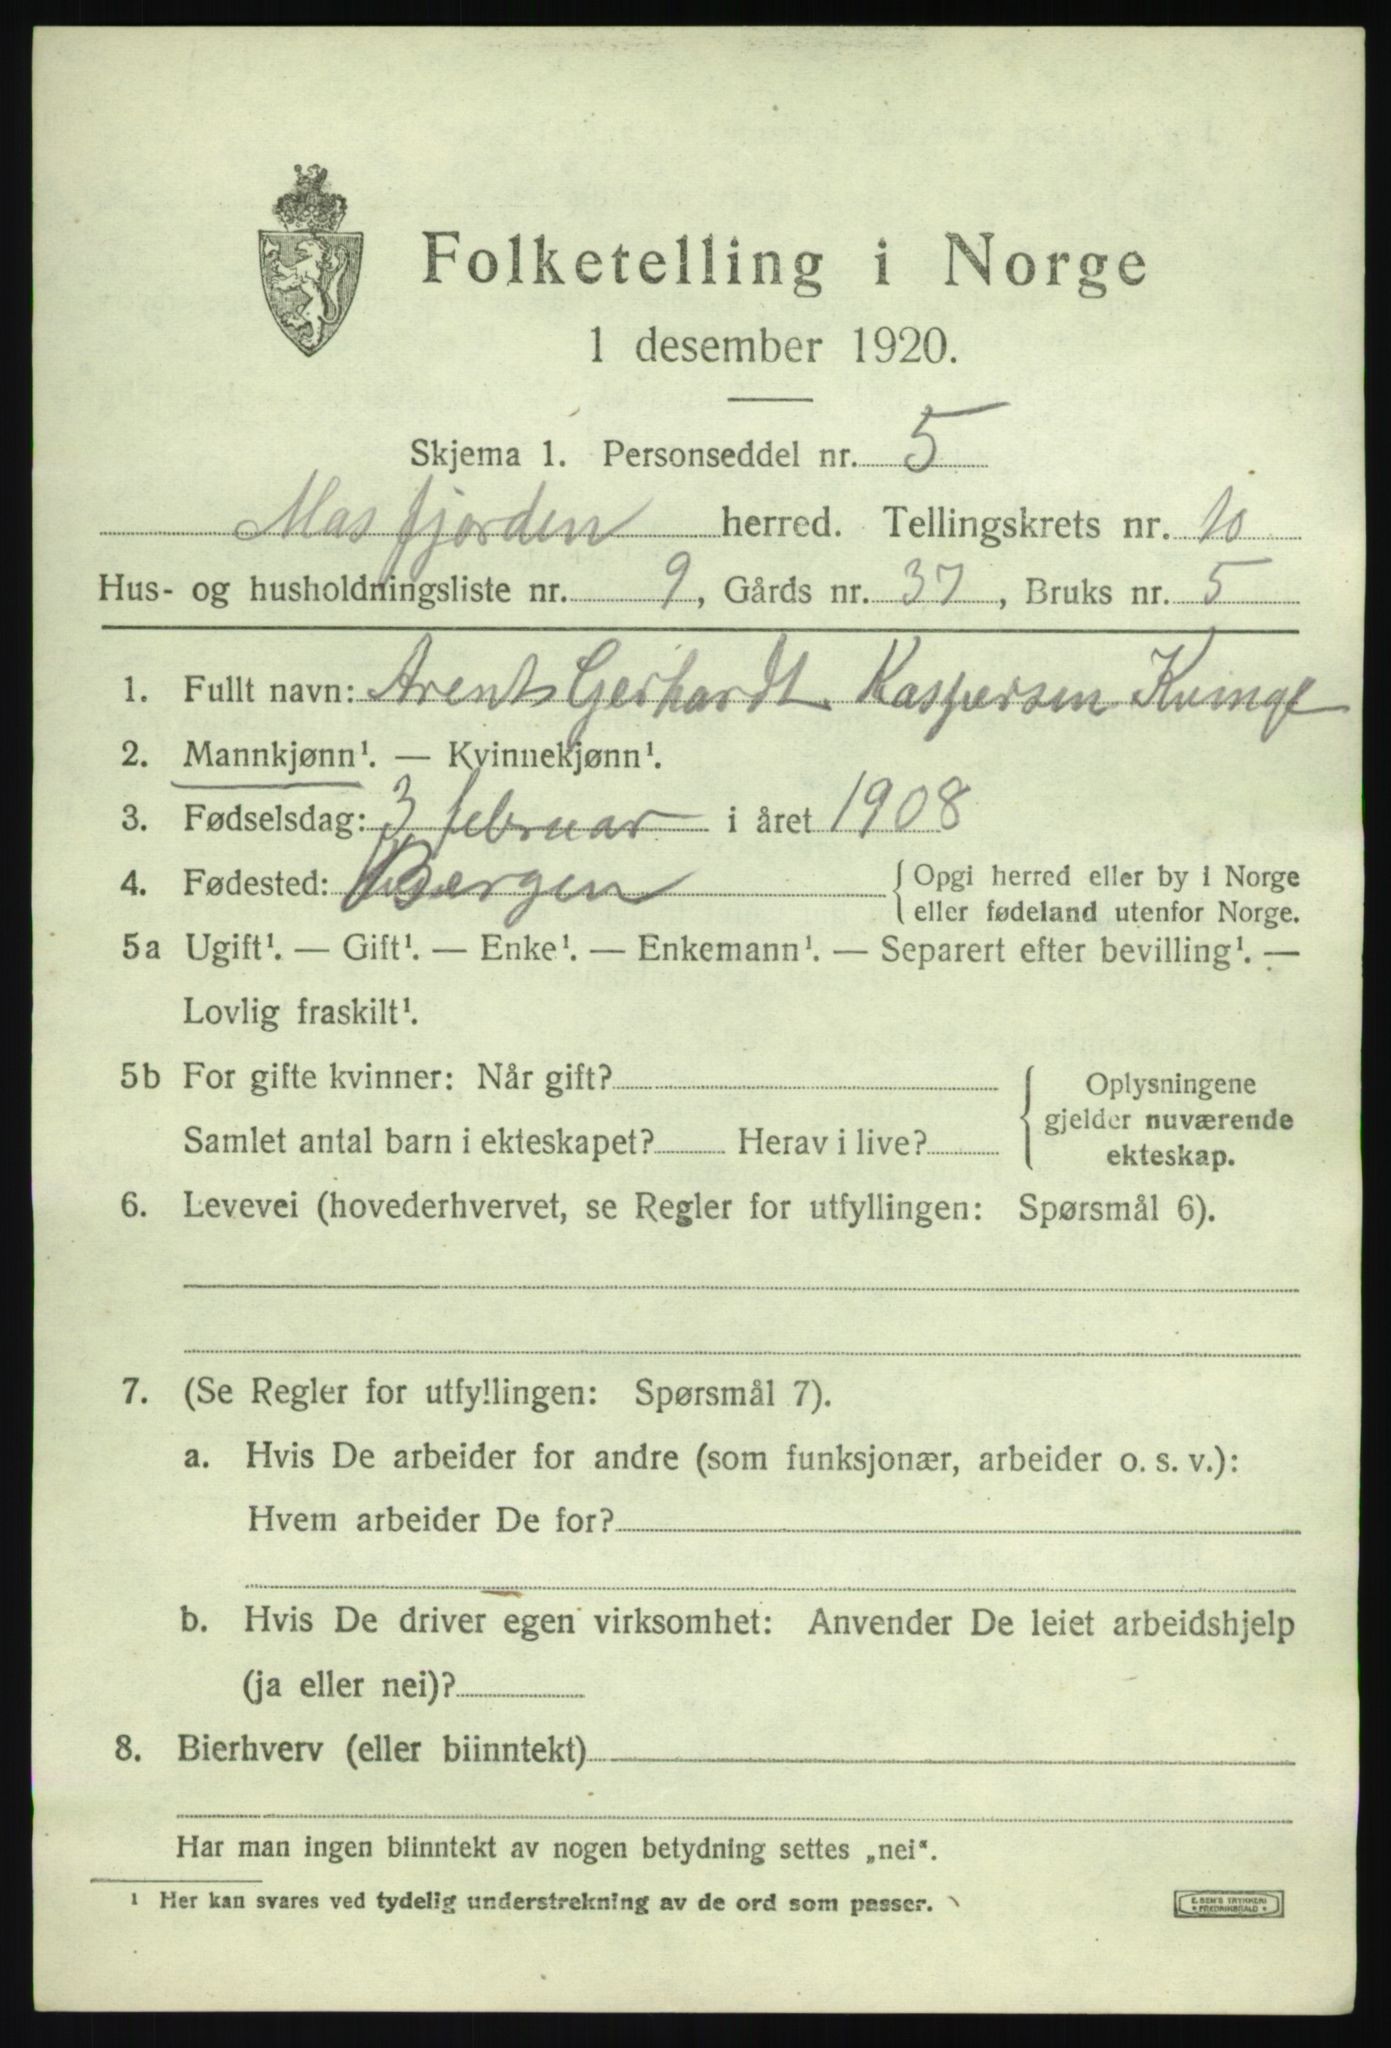 Folketelling i Norge
1 desember 1920.
Skjema 1. Personseddel nr. 5
Masfjorden herred. Tellingskrets nr. 10
Hus- og husholdningsliste nr. 9, Gårds nr. 37, Bruks nr. 5
1. Fullt navn: Arent Gerhardt Kaspersen Kvinge
2. Mannkjønn¹. — Kvinnekjønn¹.
3. Fødselsdag: 3 februar i året 1908
4. Fødested: Bergen { Opgi herred eller by i Norge
eller fødeland utenfor Norge.
5a Ugift¹. — Gift¹. — Enke¹. — Enkemann¹. — Separert efter bevilling¹. —
Lovlig fraskilt¹.
5b For gifte kvinner: Når gift? { Oplysningene
gjelder nuværende
Samlet antal barn i ekteskapet? Herav i live? ekteskap.
6. Levevei (hovederhvervet, se Regler for utfyllingen: Spørsmål 6).
7. (Se Regler for utfyllingen: Spørsmål 7).
a. Hvis De arbeider for andre (som funksjonær, arbeider o. s. v.):
Hvem arbeider De for?
b. Hvis De driver egen virksomhet: Anvender De leiet arbeidshjelp
(ja eller nei)?
8. Bierhverv (eller biinntekt)
Har man ingen biinntekt av nogen betydning settes „nei“.
¹ Her kan svares ved tydelig understrekning av de ord som passer.
E. SEM'S TRYKKERI
FREDRIKSHALD